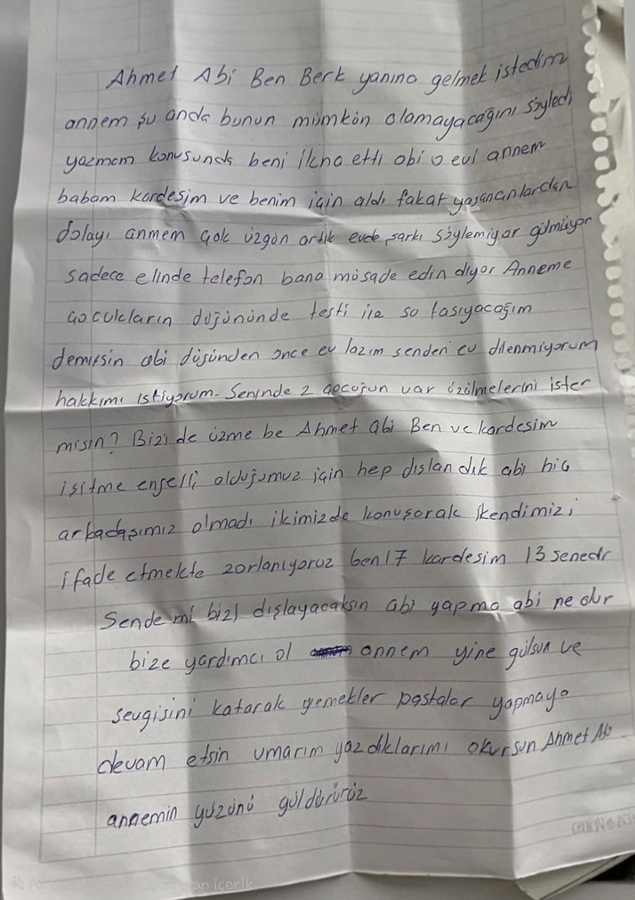 Ahmet Abi Ben Berk yanına gelmek istedim
annem şu anda bunun mümkün olamayacağını söyledi
yazmam konusunda beni ikna etti abi o evi annem
babam kardeşim ve benim için aldı fakat yaşananlardan
dolayı annem çok üzgün artık evde şarkı söylemiyor gülmüyor
sadece elinde telefon bana müsade edin diyor Anneme
çocukların düğününde testi ile su taşıyacağım
demişsin abi düğünden önce ev lazım senden ev dilenmiyorum
hakkımı istiyorum. Seninde 2 çocuğun var üzülmelerini ister
misin? Bizi de üzme be Ahmet abi Ben ve kardeşim
işitme engelli olduğumuz için hep dışlandık abi hiç
arkadaşımız olmadı ikimizde konuşarak kendimizi
ifade etmekte zorlanıyoruz ben 17 kardeşim 13 senedir
Sende mi bizi dışlayacaksın abi yapma abi ne olur
bize yardımcı ol annem yine gülsün ve
sevgisini katarak yemekler pastalar yapmaya
devam etsin umarım yazdıklarımı okursun Ahmet Abi
annemin yüzünü güldürürüz